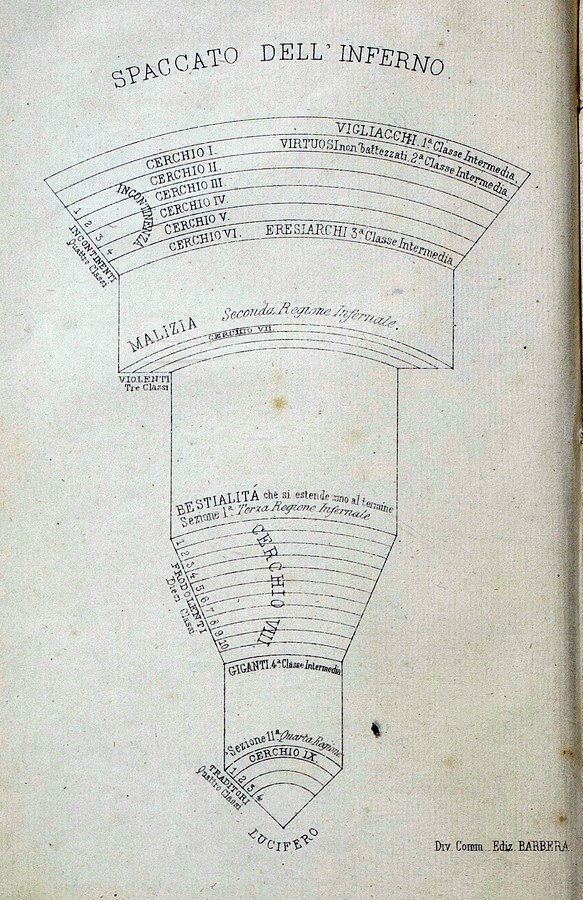 SPACCATO DELL' INFERNO.
VIGLIACCHI. 1ª Classe Intermedia.
CERCHIO I.
VIRTUOSI non battezzati. 2ª Classe Intermedia.
CERCHIO II.
CERCHIO III.
CERCHIO IV
CERCHIO V.
CERCHIO VI.
ERESIARCHI 3ª Classe Intermedia
INCONTINENZA
1 2 3 4
INCONTINENTI
Quattro Classi
MALIZIA
Seconda Regione Infernale.
CERCHIO VII.
VIOLENTI
Tre Classi
BESTIALITÁ che si estende sino al termine
Sezione 1ª. Terza Regione Infernale
CERCHIO VIII
1 2 3 4 5 6 7 8 9 10
FRODOLENTI
Dieci Classi
GIGANTI. 4ª Classe Intermedia
Sezione 11ª. Quarta Regione
CERCHIO IX.
1 2 3 4
TRADITORI
Quattro Classi
LUCIFERO
Div. Comm. Ediz. BARBERA